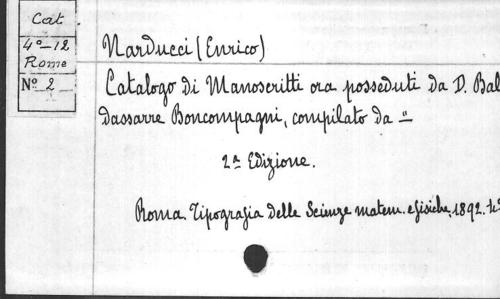 Cat.
4º-12
Rome
Nº 2
Narducci (Enrico)
Catalogo di Manoscritti ora posseduti da D. Bal
dassarre Boncompagni, compilato da "
2ª Edizione.
Roma. Tipografia delle Scienze matem. e fisiche, 1892.